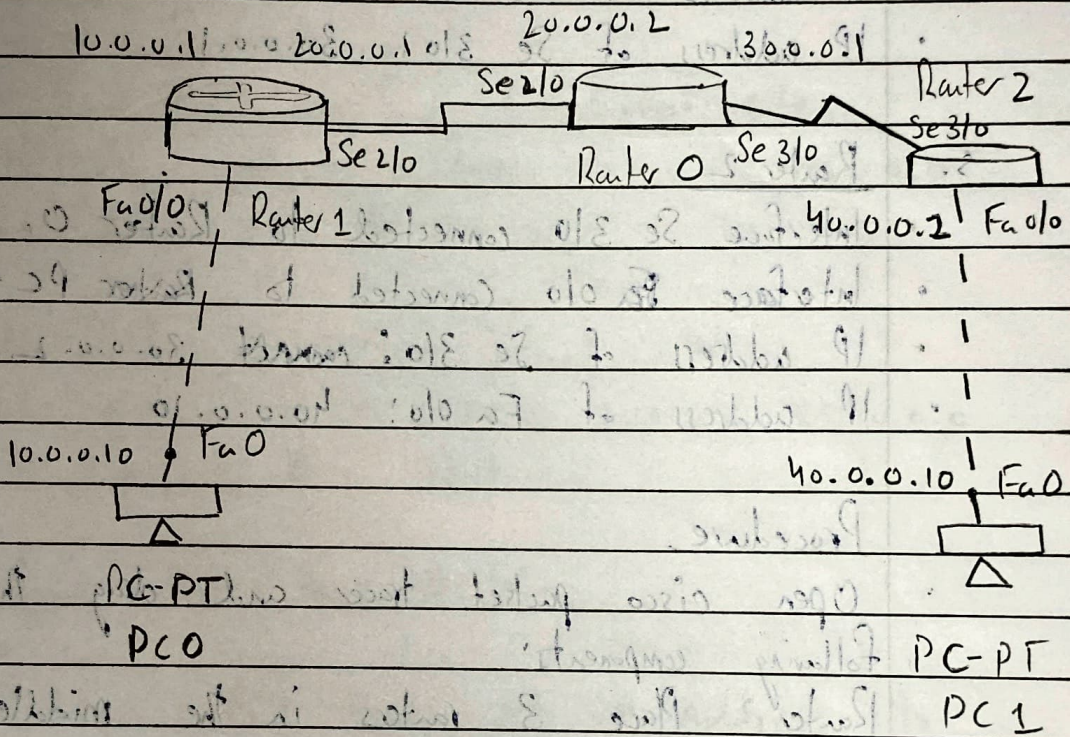 10.0.0.1 20.0.0.1 20.0.0.2 30.0.0.1
Se 2/0 Router 2
Se 2/0 Router 0 Se 3/0 Se 3/0
Fa 0/0 Router 1 40.0.0.2 Fa 0/0
10.0.0.10 Fa 0
40.0.0.10 Fa 0
PC-PT
PC0 PC-PT
PC 1